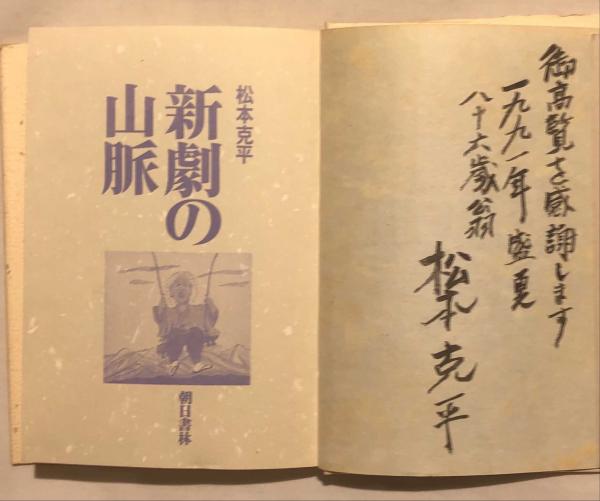 御高覧を感謝します
一九九一年盛夏
八十六歳翁
松本克平
松本克平
新劇の
山脈
朝日書林